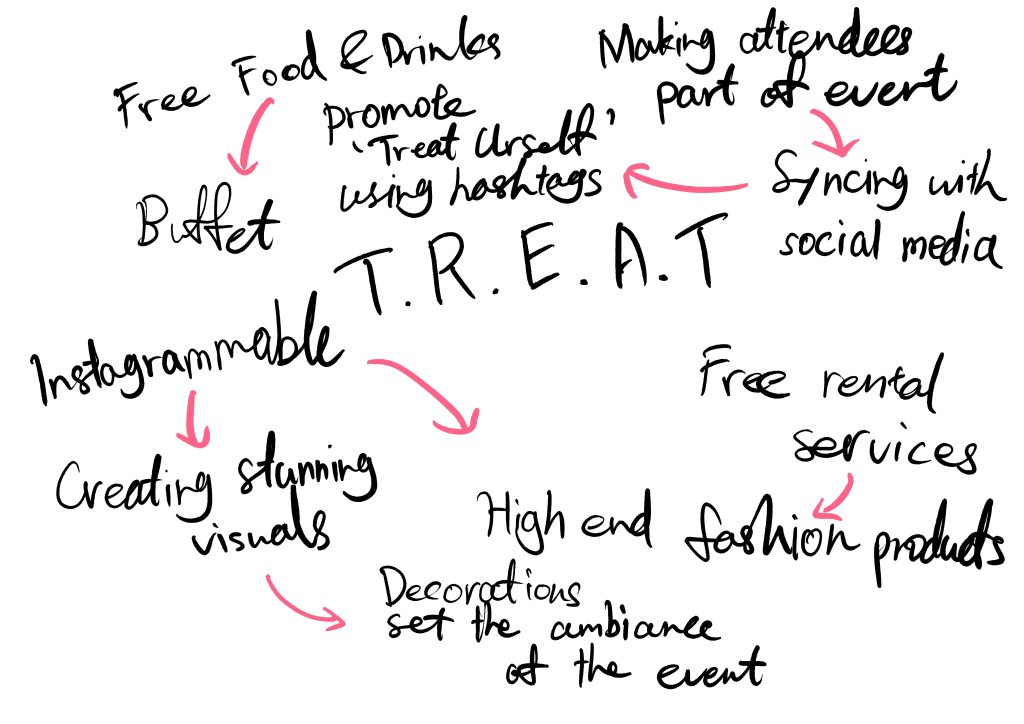 Free Food & Drinks
Buffet
promote
'Treat Urself'
using hashtags
Making attendees
part of event
Syncing with
social media
T.R.E.A.T
Instagrammable
Creating stunning
visuals
Decorations
set the ambiance
of the event
Free rental
services
High end fashion products